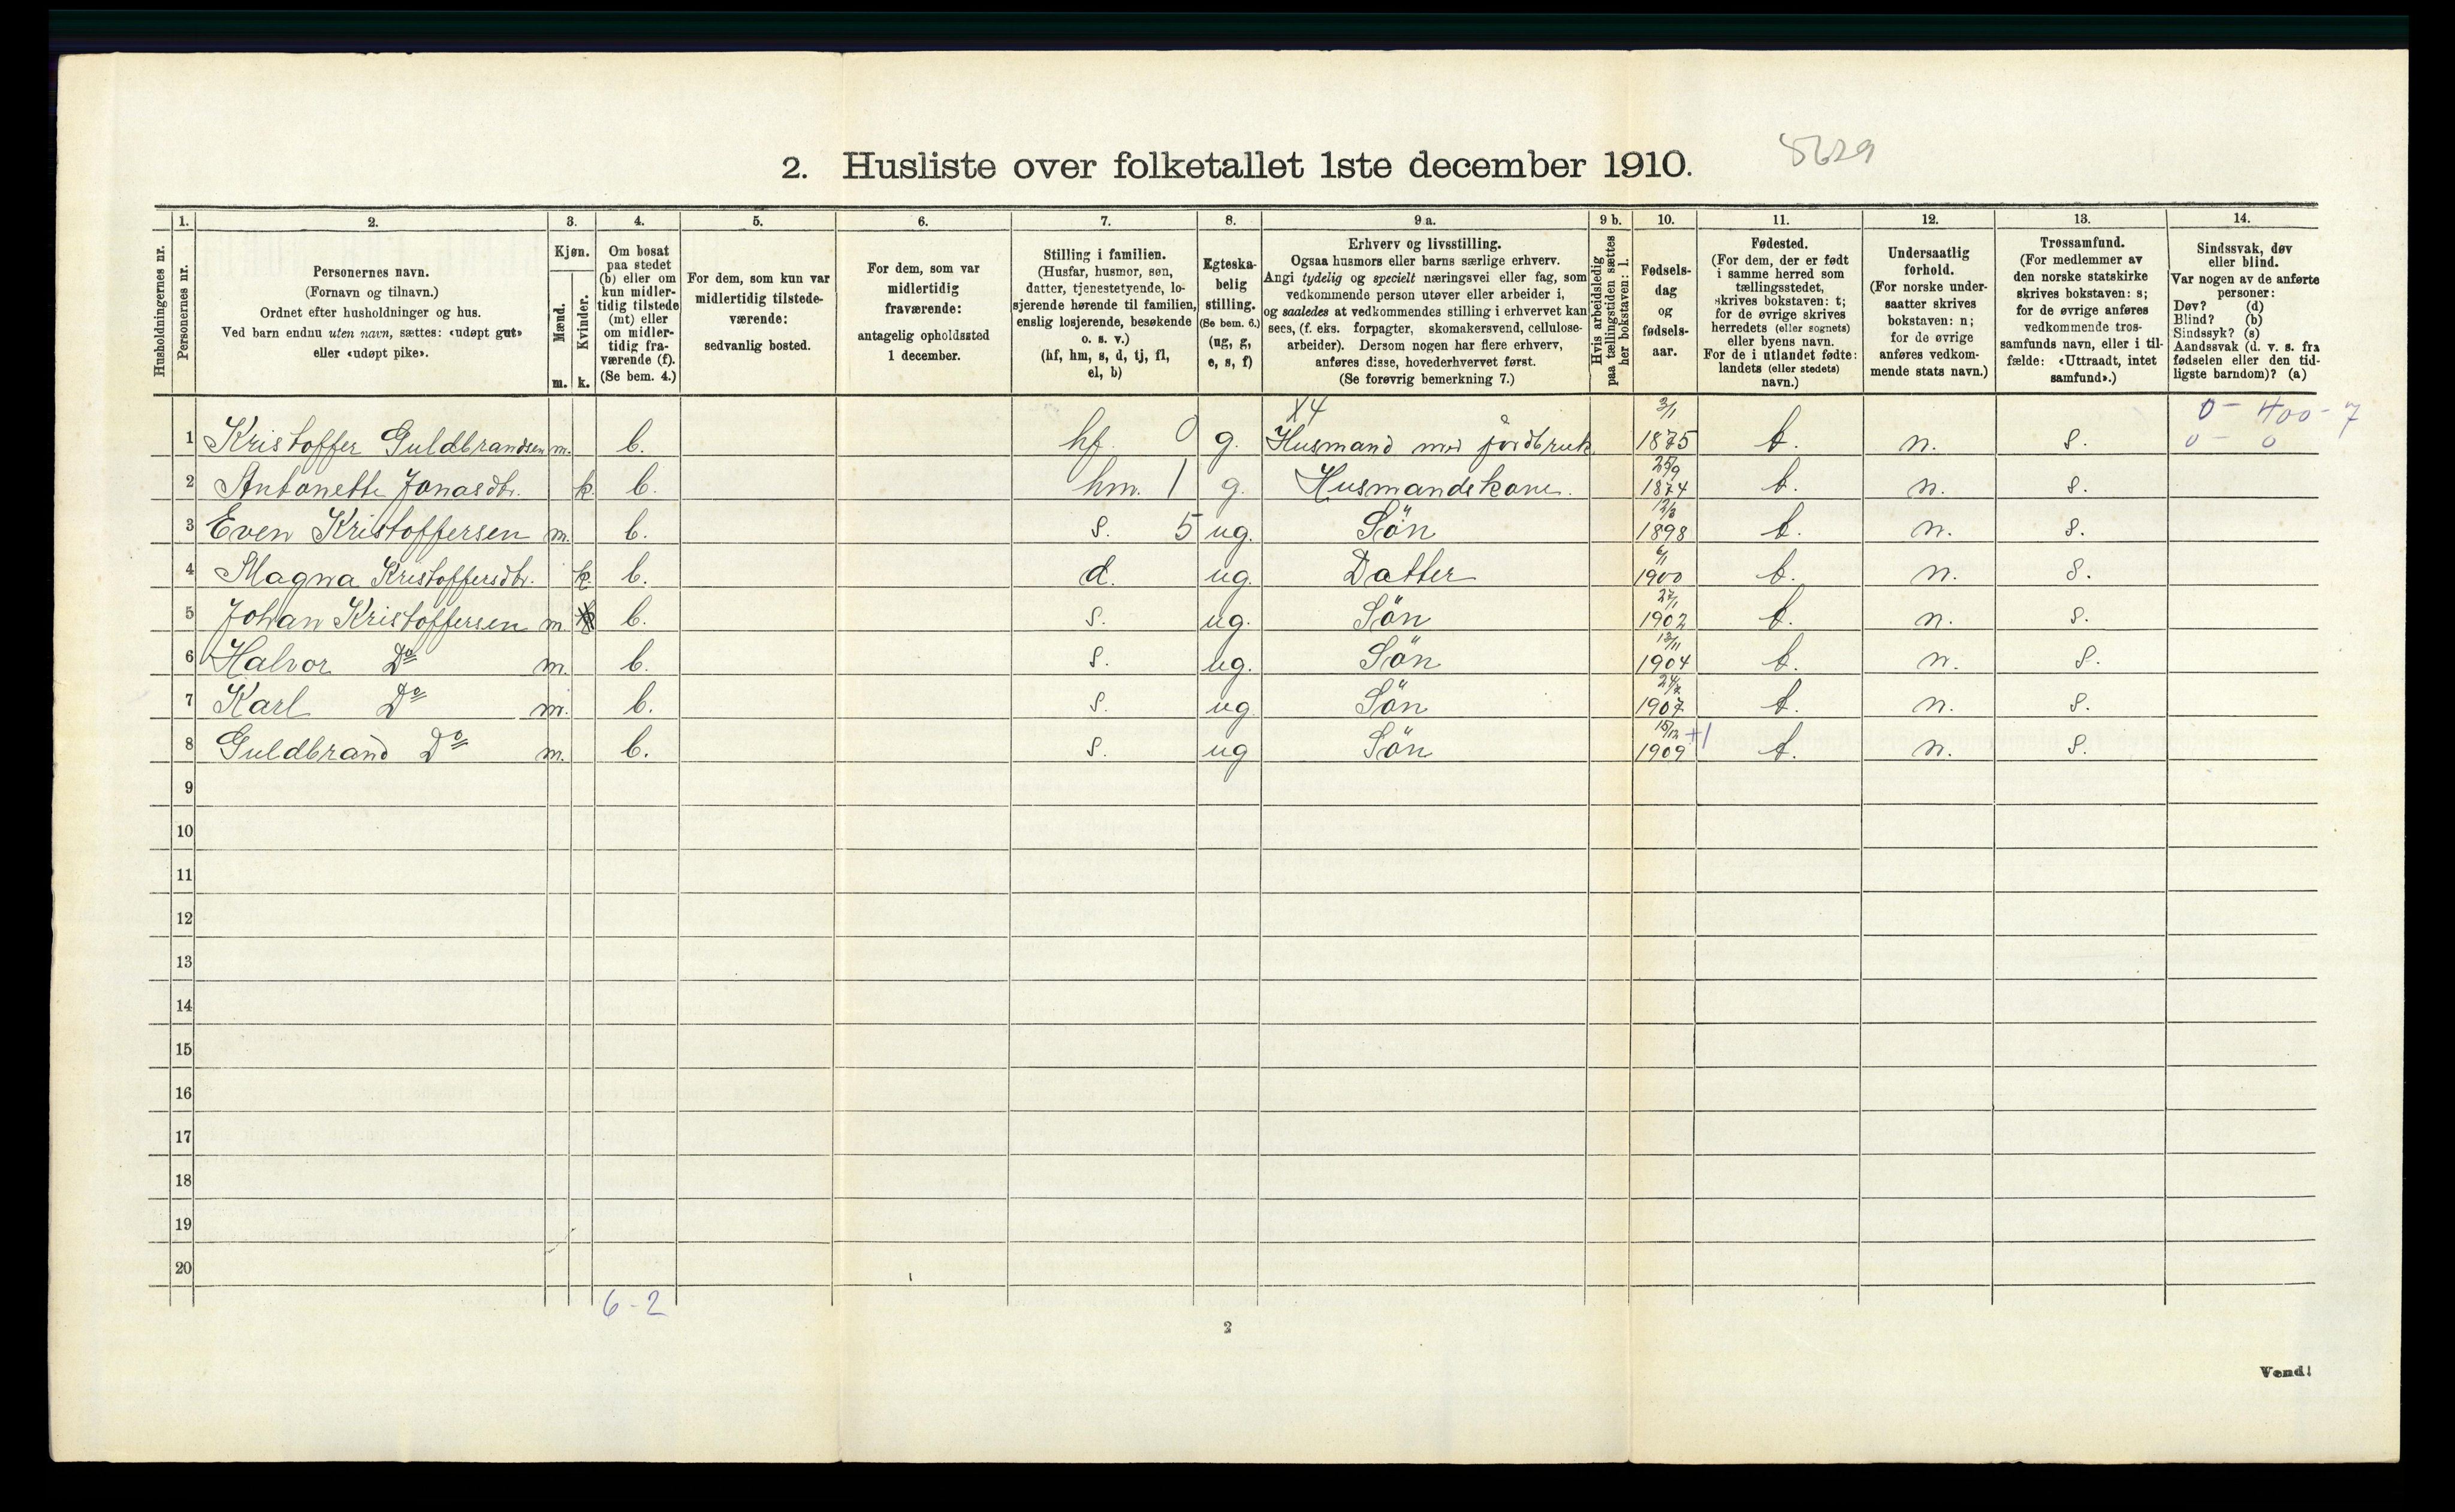 2. Husliste over folketallet 1ste december 1910.
5629
1. 2. 3. 4. 5. 6. 7. 8. 9 a. 9 b. 10. 11. 12. 13. 14.
Husholdningernes nr.
Personernes nr.
Personernes navn.
(Fornavn og tilnavn.)
Ordnet efter husholdninger og hus.
Ved barn endnu uten navn, sættes: «udøpt gut»
eller «udøpt pike».
Kjøn.
Mænd.
Kvinder.
m. k.
Om bosat
paa stedet
(b) eller om
kun midler-
tidig tilstede
(mt) eller
om midler-
tidig fra-
værende (f).
(Se bem. 4.)
For dem, som kun var
midlertidig tilstede-
værende:
sedvanlig bosted.
For dem, som var
midlertidig
fraværende:
antagelig opholdssted
1 december.
Stilling i familien.
(Husfar, husmor, søn,
datter, tjenestetyende, lo-
sjerende hørende til familien,
enslig losjerende, besøkende
o. s. v.)
(hf, hm, s, d, tj, fl,
el, b)
Egteska-
belig
stilling.
(Se bem. 6.)
(ug, g,
e, s, f)
Erhverv og livsstilling.
Ogsaa husmors eller barns særlige erhverv.
Angi tydelig og specielt næringsvei eller fag, som
vedkommende person utøver eller arbeider i,
og saaledes at vedkommendes stilling i erhvervet kan
sees, (f. eks. forpagter, skomakersvend, cellulose-
arbeider). Dersom nogen har flere erhverv,
anføres disse, hovederhvervet først.
(Se forøvrig bemerkning 7.)
Hvis arbeidsledig
paa tællingstiden sættes
her bokstaven: l.
Fødsels-
dag
og
fødsels-
aar.
Fødested.
(For dem, der er født
i samme herred som
tællingsstedet,
skrives bokstaven: t;
for de øvrige skrives
herredets (eller sognets)
eller byens navn.
For de i utlandet fødte:
landets (eller stedets)
navn.)
Undersaatlig
forhold.
(For norske under-
saatter skrives
bokstaven: n;
for de øvrige
anføres vedkom-
mende stats navn.)
Trossamfund.
(For medlemmer av
den norske statskirke
skrives bokstaven: s;
for de øvrige anføres
vedkommende tros-
samfunds navn, eller i til-
fælde: «Uttraadt, intet
samfund».)
Sindssvak, døv
eller blind.
Var nogen av de anførte
personer:
Døv? (d)
Blind? (b)
Sindssyk? (s)
Aandssvak (d. v. s. fra
fødselen eller den tid-
ligste barndom)? (a)
X4 3/1 0 - 400 - 7
1 Kristoffer Guldbrandsen m. b. hf. 0 g. Husmand med jordbruk 1875 t. n. s. 0 - 0
25/9
2 Antonette Jonasdtr. k. b. hm. 1 g. Husmandskone. 1874 t. n. s.
12/3
3 Even Kristoffersen m. b. s. 5 ug. Sön 1898 t. n. s.
6/1
4 Magna Kristoffersdtr. k. b. d. ug. Datter 1900 t. n. s.
27/1
5 Johan Kristoffersen m b. s. ug. Sön 1902 t. n. s.
13/11
6 Halvor Do m. b. s. ug. Sön 1904 t. n. s.
24/7
7 Karl Do m. b. s. ug Sön 1907 t. n. s.
15/12 +1
8 Guldbrand Do m. b. s. ug Sön 1909 t. n. s.
9
10
11
12
13
14
15
16
17
18
19
20
6 - 2
2
Vend!